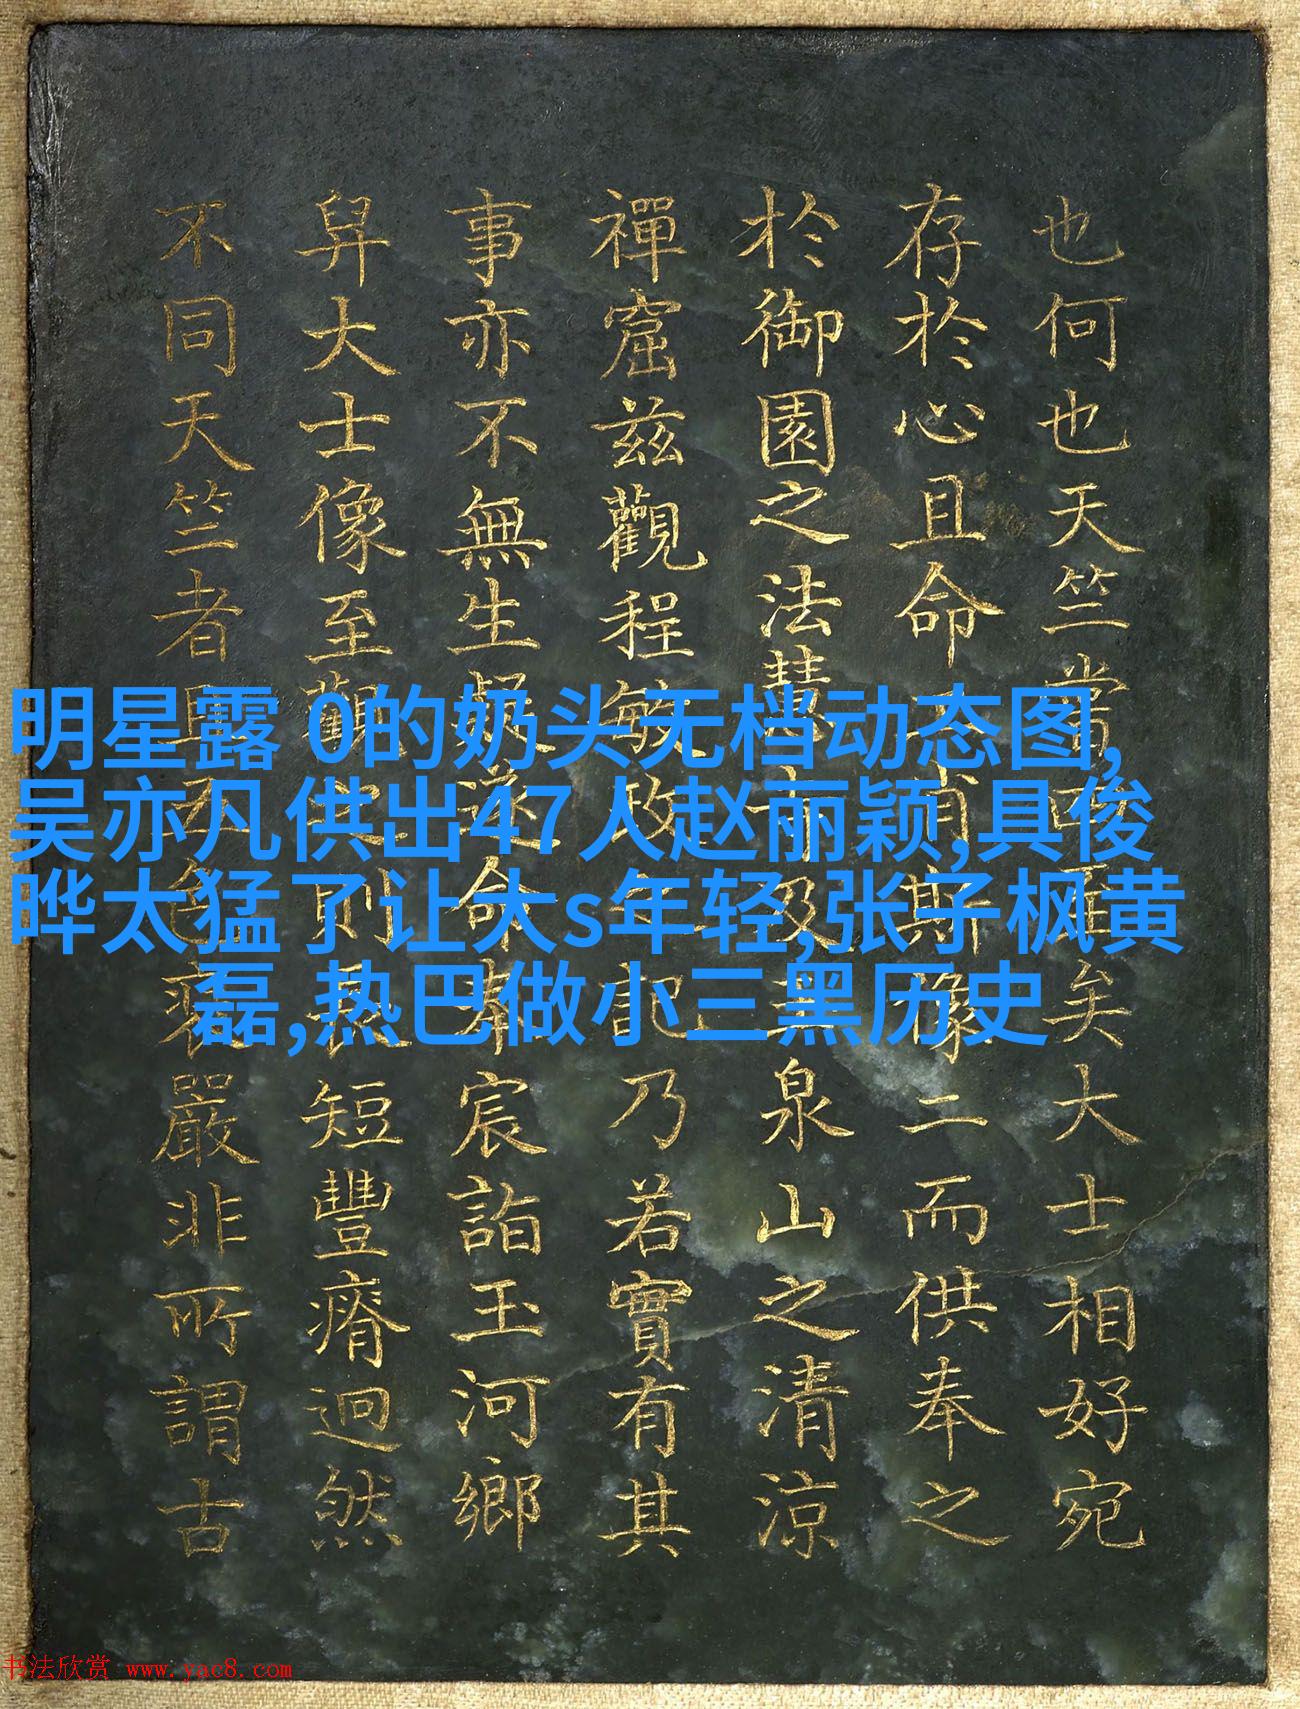 也何也天竺當矣大士相好宛
存於心且命斯像二而供奉之
於御園之法慧寺及玉泉山之清涼
禪窟茲觀程敏政記乃若實有其
事亦不無生疑遂命奉宸詣玉河鄉
舁大士像至觀之則長短豐瘠迥然
不同天竺者五色嚴非所謂古
明星露 0的奶头无档动态图,
吴亦凡供出47人赵丽颖,具俊
晔太猛了让大s年轻,张子枫黄
磊,热巴做小三黑历史
书法欣赏 www.yac8.com